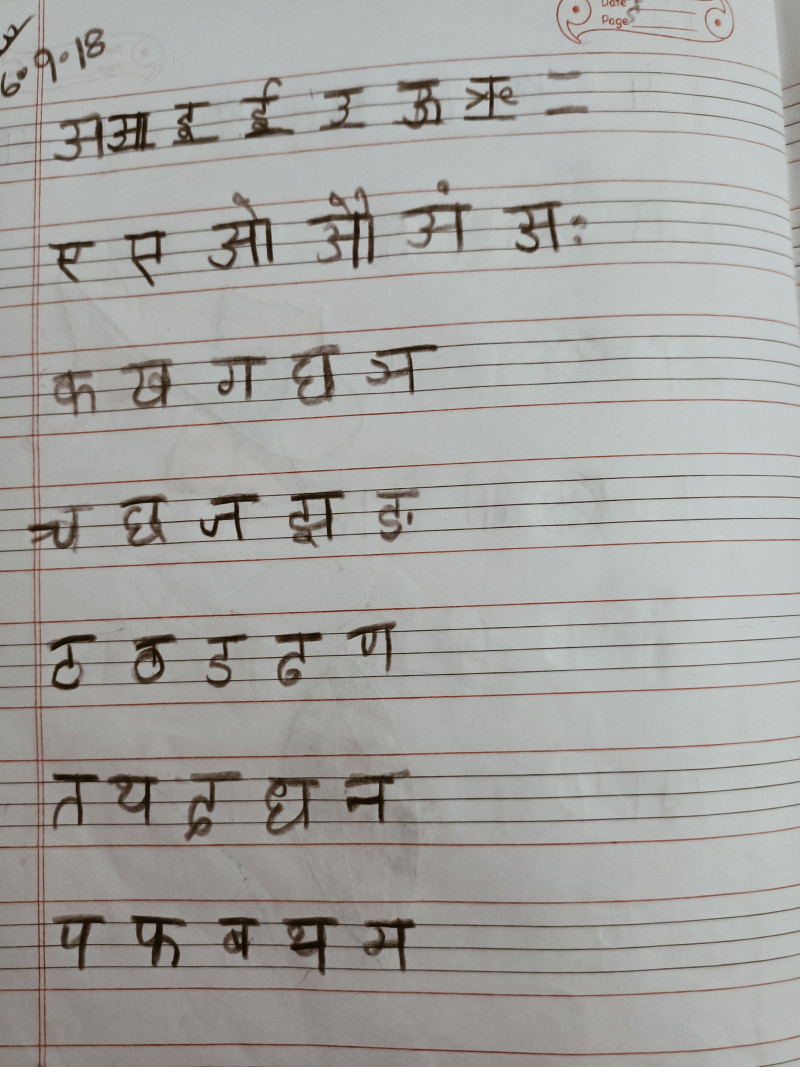 Date
Page 5
6.9.18
अ आ इ ई उ ऊ ऋ =
ए ए ओ औ अं अः
क ख ग घ ञ
च छ ज झ ङ
ठ ठ ड ढ ण
त थ द ध न
प फ ब थ म